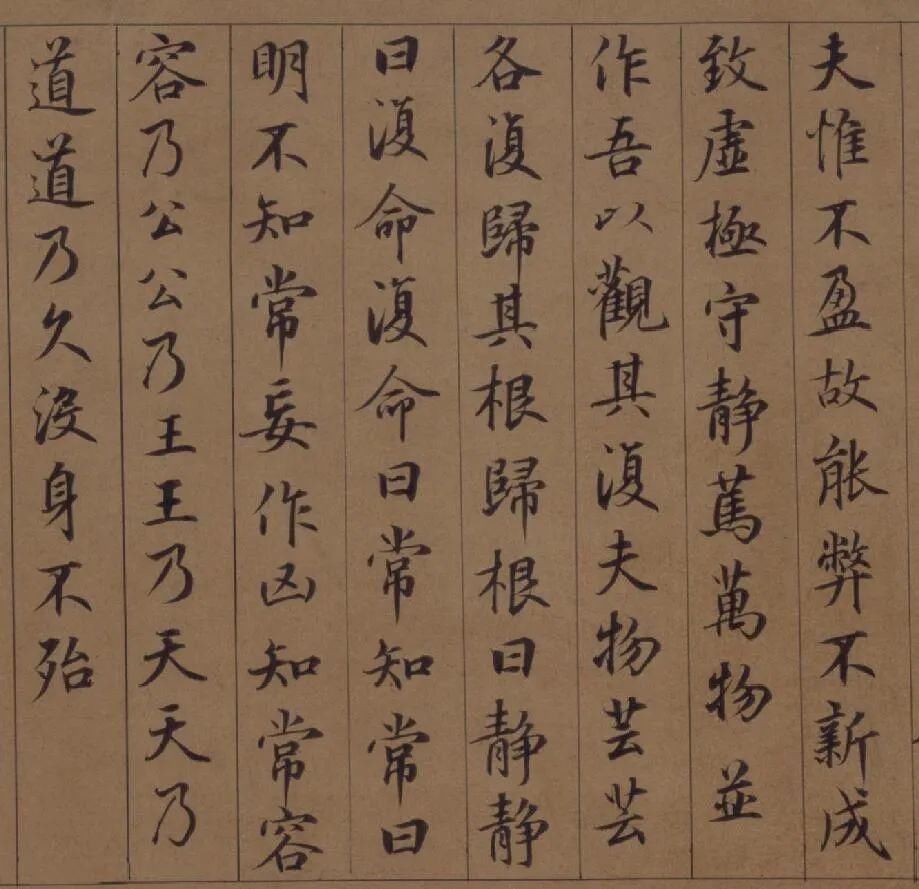 夫惟不盈故能弊不新成
致虛極守静篤萬物並
作吾以觀其復夫物芸芸
各復歸其根歸根曰静静
曰復命復命曰常知常曰
明不知常妄作凶知常容
容乃公公乃王王乃天天乃
道道乃久沒身不殆